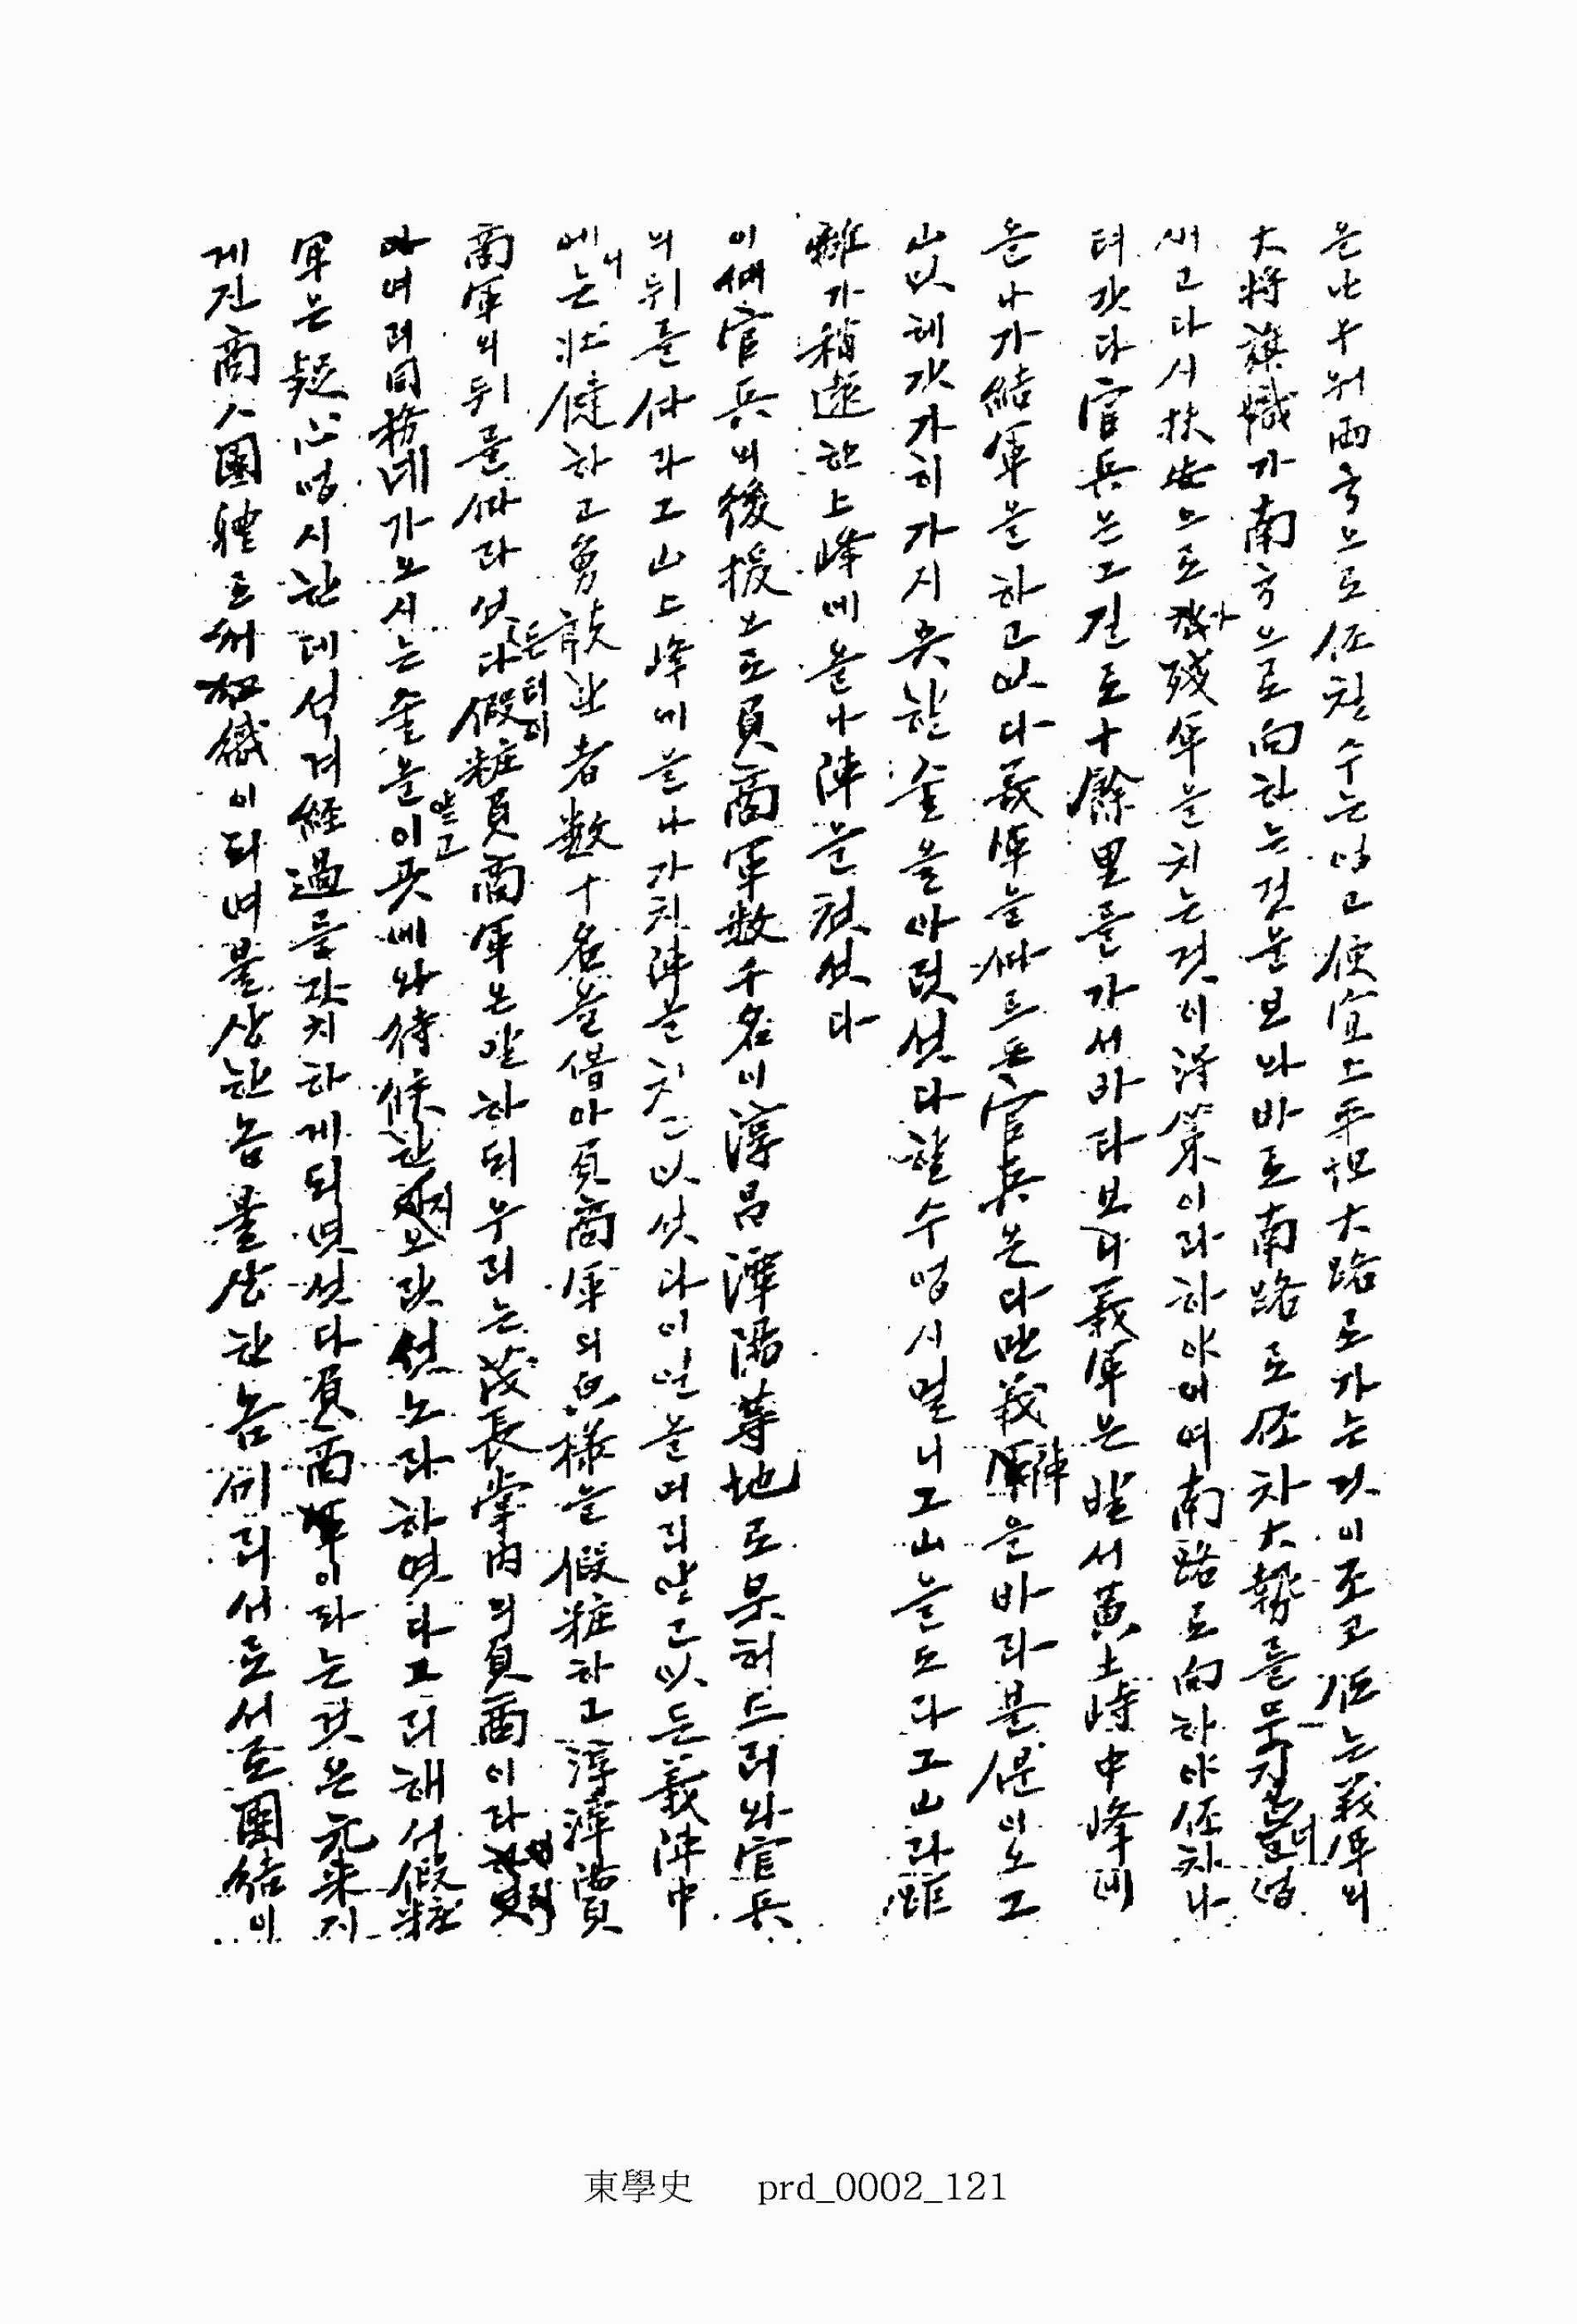 은 此 우위 兩方으로 任칠 수는 업고 便宜上 平坦大路로 가는 것이 조코 任는 義軍의
大將旗幟가 南方으로 向하는 것을 보와 바로 南路로 任 차 大勢를 뭇지 영
새고 다시 扶安으로 나 殘軍을 치는 것이 得策이라 하야 이여 南路로 向하야 任차나
터갓다 官兵은 그 길로 十餘里를 가서 바라보니 義軍은 발서 黃土峙 中峰에
올나가 結軍을 하고 잇다 義軍을 따르든 官兵은 다만 義陣을 바라볼 뿐이오 그
山 잇헤 갓가히 가지 못할 줄을 아럿섯다 할 수 업시 멀니 그 山을 도라 그 山과 距
離가 稍遠한 上峰에 올나 陣을 첫섯다
이때 官兵의 後援으로 負商軍 數千名이 淳昌 潭陽 等地로붓허 드러와 官兵
의 뒤를 따라 그 山 上峰에 올나가 치 陣을 치고 잇섯다 이 일을 미리 알고 잇든 義陣中
에서는 壯健하고 勇敢한 者 數十名을 借아 負商軍의 貌樣을 假粧하고 淳潭 負
商軍의 뒤를 따라섯다 든든히 假粧 負商軍은 말하되 우리는 茂長 掌內의 負商이라
하며 러 同務네가 오시는 줄을 알고 이곳에 와 待候한지 오랏섯노라 하엿다 그리해서 假粧
軍은 疑心업시 한데 석겨 經過를 갓치 하게 되엿섯다 負商軍이라는 것은 元來 지
게진 商人團體로써 組織이 되며 불상한 놈 불상한 놈끼리 서로서로 團結이